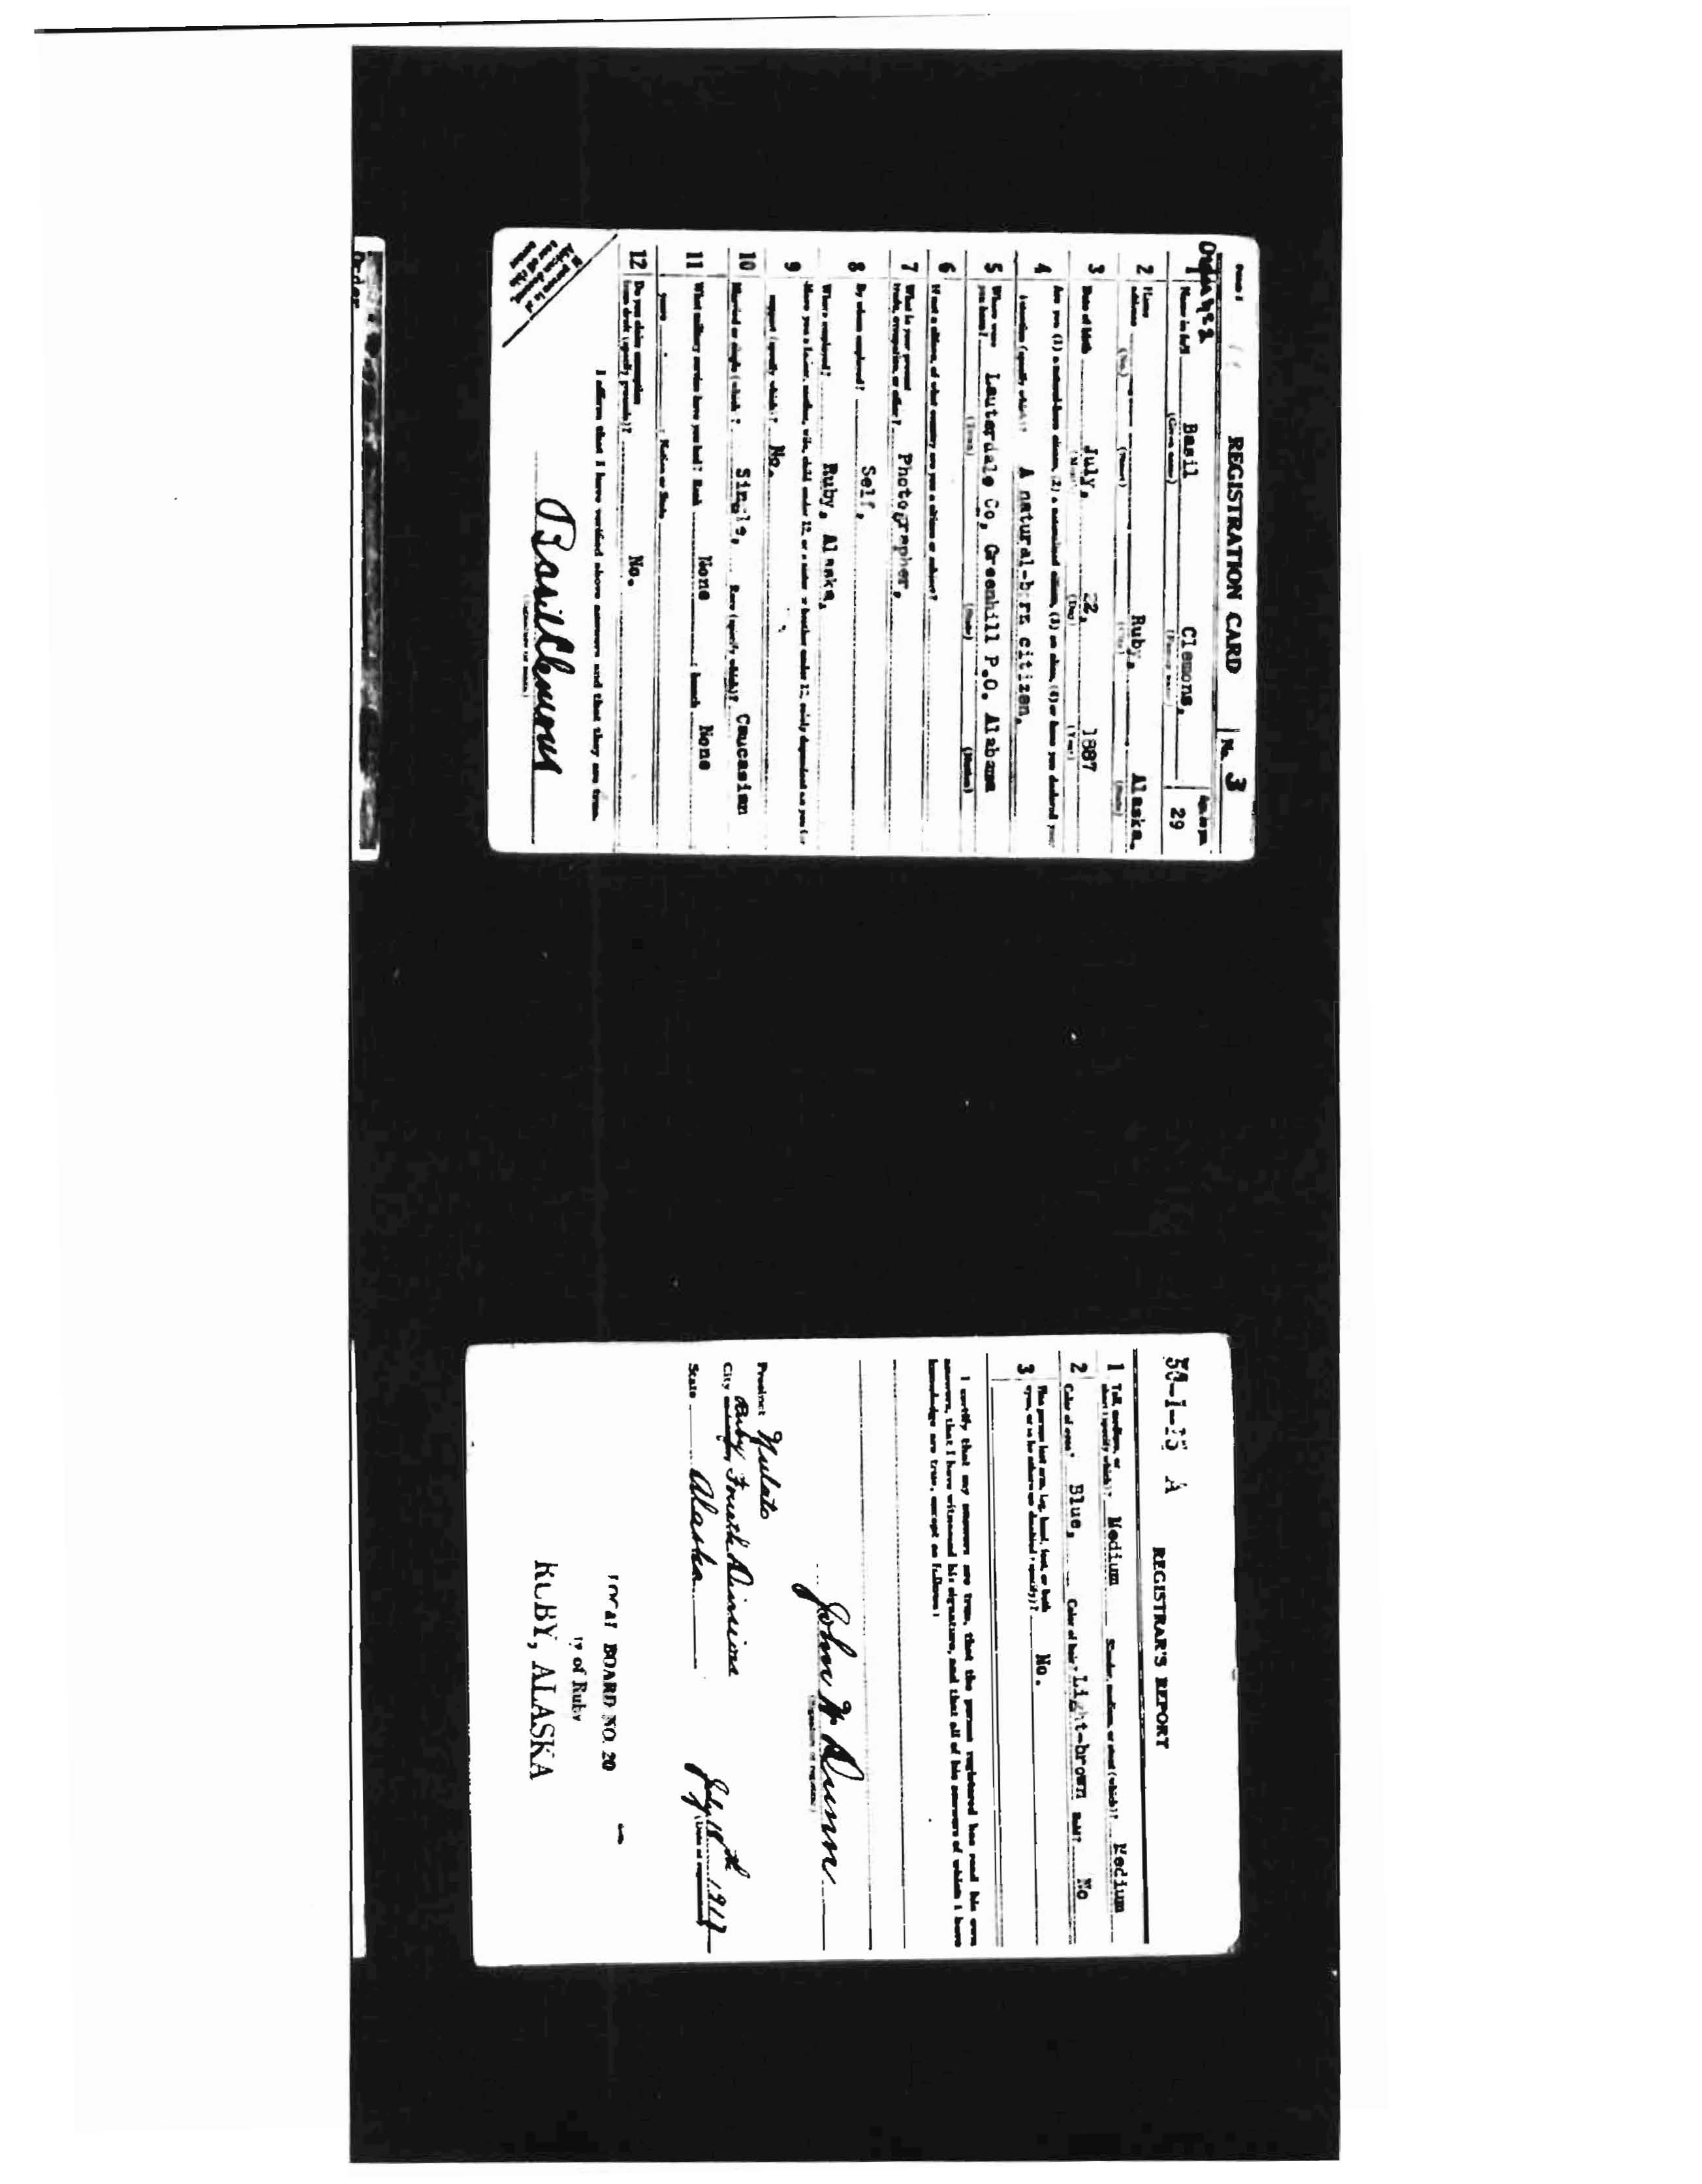 Form 1
REGISTRATION CARD No. 3
Order 922
1 Name in full Basil Clemons, Age, in yrs. 29
(Given name) (Family name)
2 Home address Ruby, Alaska.
(No.) (Street) (City) (State)
3 Date of birth July, 22, 1887
(Month) (Day) (Year)
4 Are you (1) a natural-born citizen, (2) a naturalized citizen, (3) an alien, (4) or have you declared your
intention (specify which)? A natural-born citizen,
5 Where were you born? Lauterdale Co, Greenhill P.O. Alabama
(Town) (State) (Nation)
6 If not a citizen, of what country are you a citizen or subject?
7 What is your present trade, occupation, or office? Photographer,
8 By whom employed? Self,
Where employed? Ruby, Alaska,
9 Have you a father, mother, wife, child under 12, or a sister or brother under 12, solely dependent on you for
support (specify which)? No.
10 Married or single (which)? Single, Race (specify which)? Caucasian
11 What military service have you had? Rank None ; branch None
years ; Nation or State
12 Do you claim exemption from draft (specify grounds)? No.
I affirm that I have verified above answers and that they are true.
Basil Clemons
(Signature or mark)
Order
50-1-15 A
REGISTRAR'S REPORT
1 Tall, medium, or short (specify which)? Medium Slender, medium, or stout (which)? Medium
2 Color of eyes? Blue, Color of hair? Light-brown Bald? No
3 Has person lost arm, leg, hand, foot, or both eyes, or is he otherwise disabled (specify)? No.
I certify that my answers are true, that the person registered has read his own
answers, that I have witnessed his signature, and that all of his answers of which I have
knowledge are true, except as follows:
John W Dunn
(Signature of registrar)
Precinct Nulato
City Ruby, Fourth Division
State Alaska July 18th 1917
(Date of registration)
LOCAL BOARD NO. 20
ty of Ruby
RUBY, ALASKA